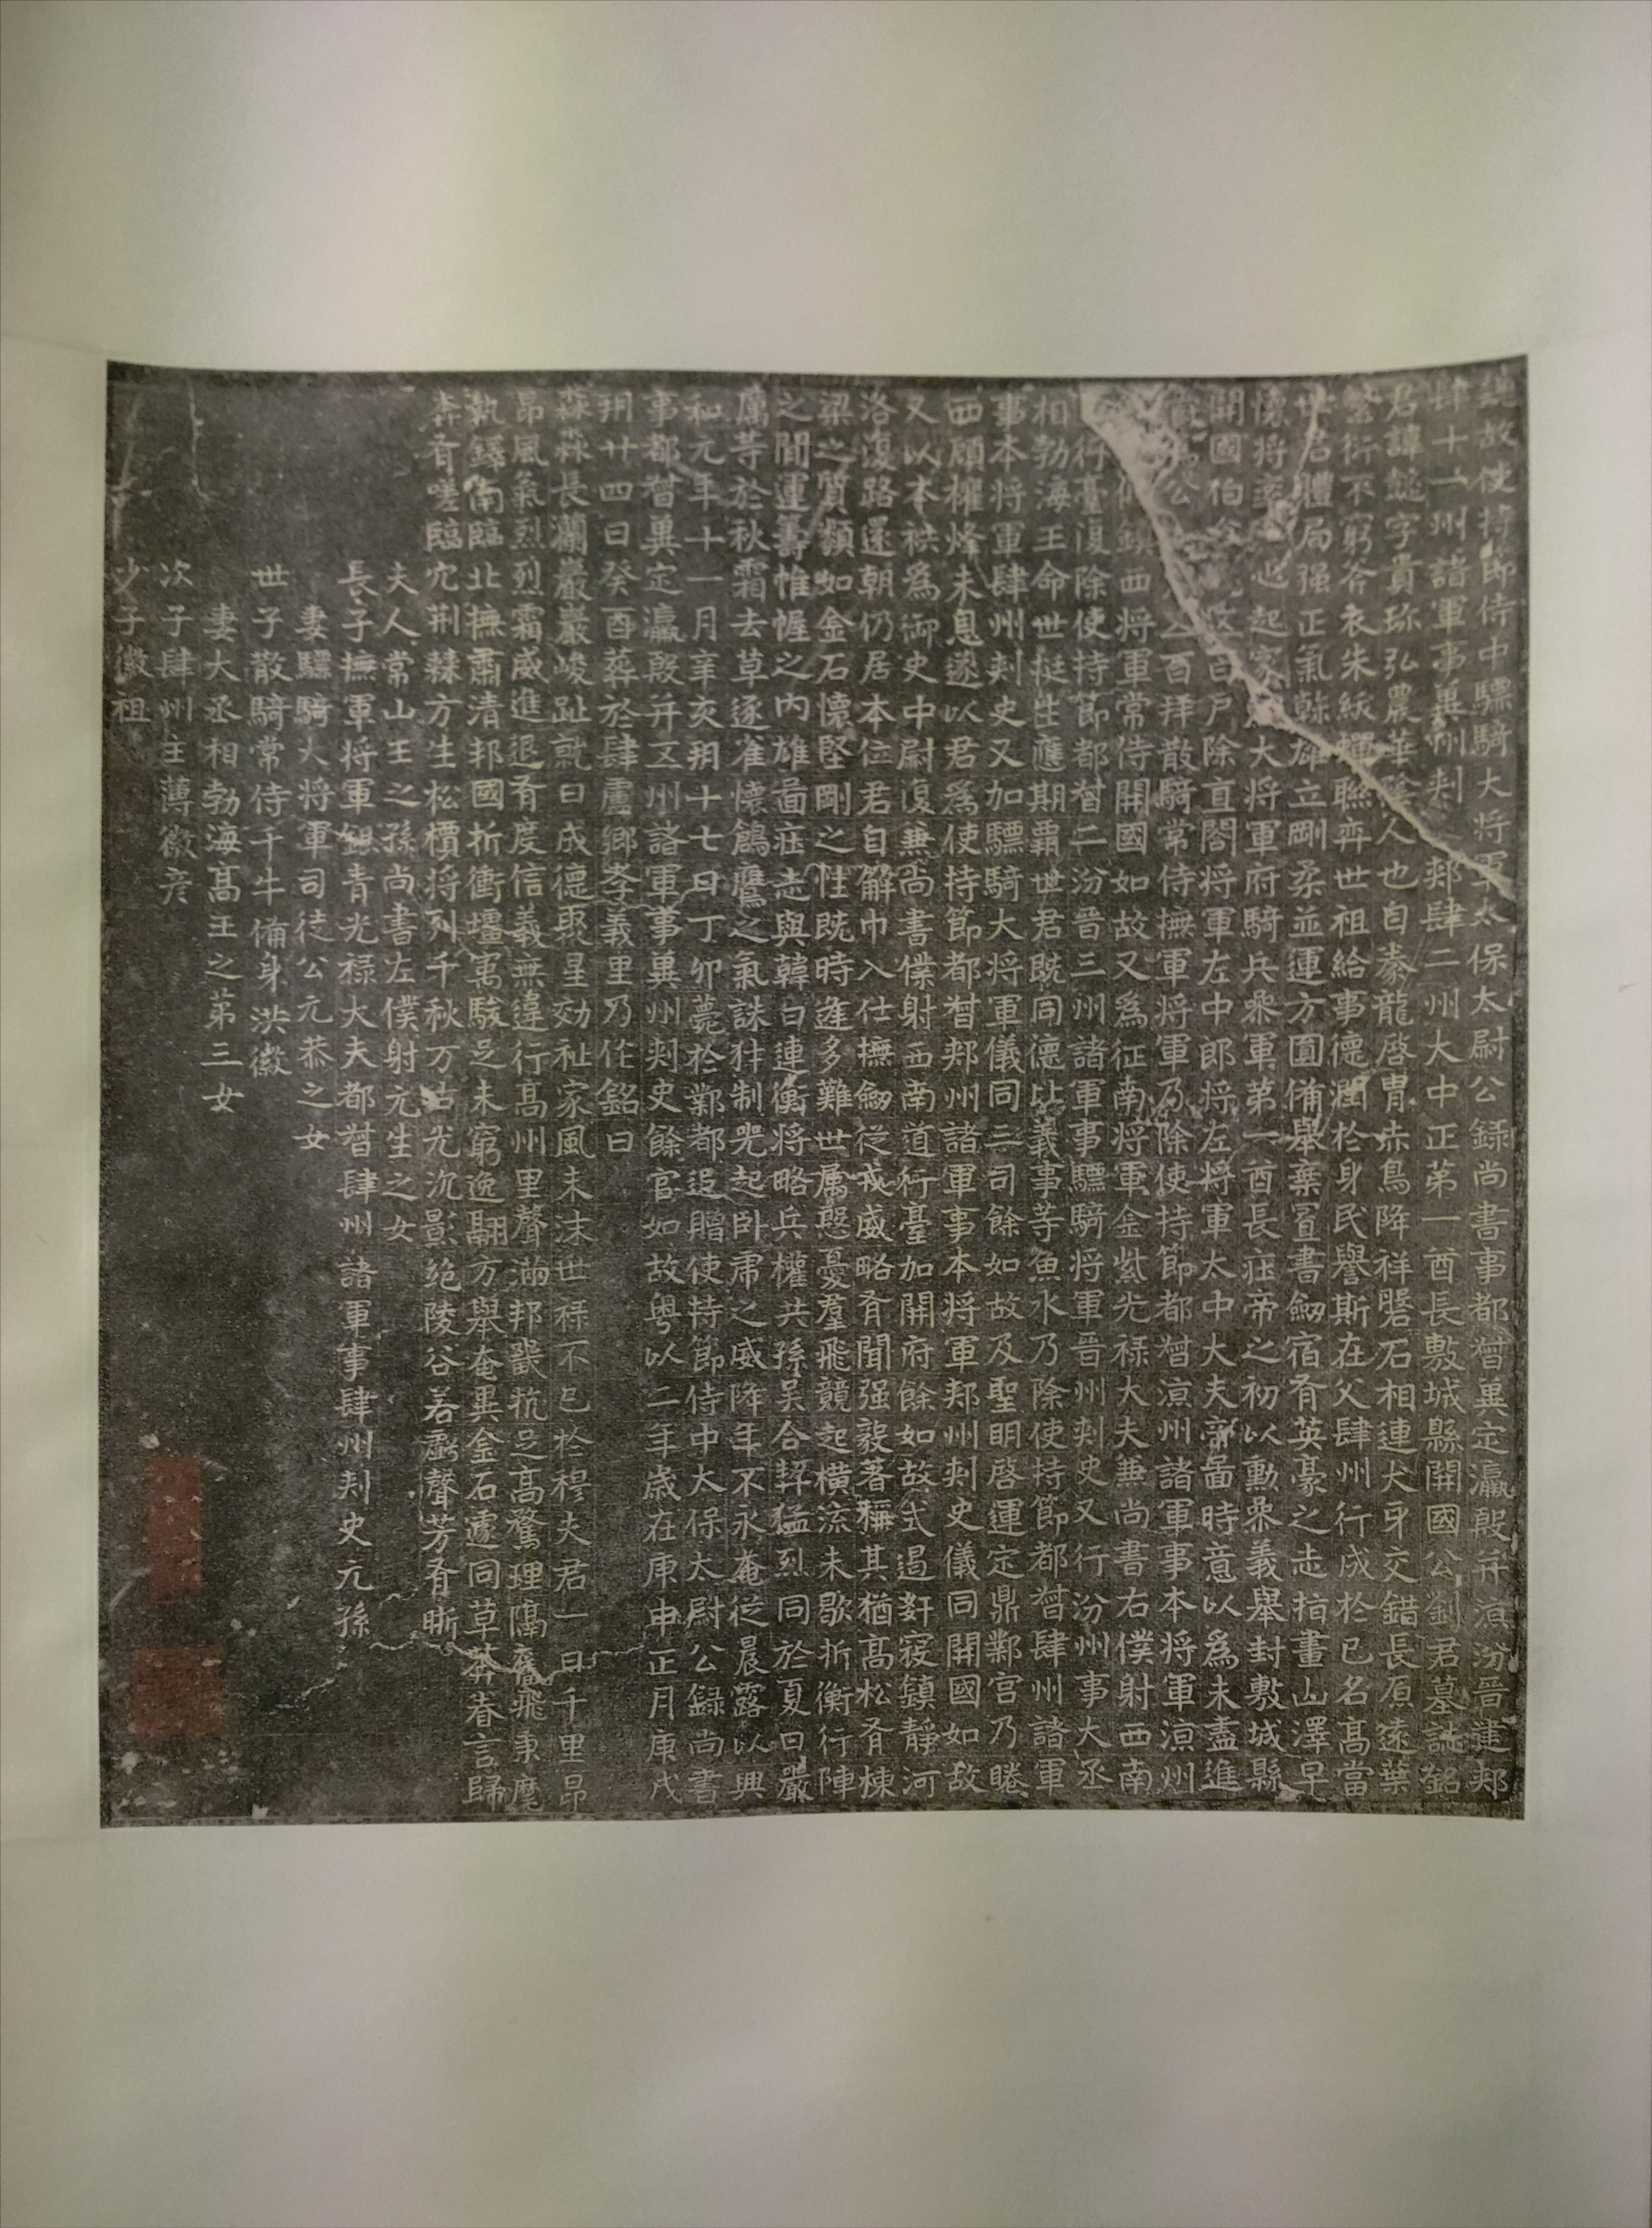 魏故使持節侍中驃騎大將軍太保太尉公錄尚書事都督冀定瀛殷并涼汾晉建郟
肆十一州諸軍事冀州刺史郟肆二州大中正苐一酋長敷城縣開國公劉君墓誌銘
君諱懿字貴珎弘農華陰人也自豢龍啓胄赤烏降祥磐石相連犬牙交錯長原遠葉
繁衍不窮斧衣朱紱蟬聯弈世祖給事德潤於身民譽斯在父肆州行成於己名高當
世君體局强正氣幹雄立剛柔並運方圓俻舉棄置書劒宿有英豪之志指畫山澤早
懷將率之心起家為大將軍府騎兵叅軍苐一酋長庄帝之初以勳叅義舉封敷城縣
開國伯食邑五百戶除直閤將軍左中郎將左將軍太中大夫帝啚時意以為未盡進
爲公八百拜散騎常侍撫軍將軍乃除使持節都督涼州諸軍事本將軍涼州
鎮西將軍常侍開國如故又為征南將軍金紫光祿大夫兼尚書右僕射西南
行臺復除使持節都督二汾晉三州諸軍事驃騎將軍晉州刺史又行汾州事大丞
相勃海王命世挺生應期霸世君既同德比義事等魚水乃除使持節都督肆州諸軍
事本將軍肆州刺史又加驃騎大將軍儀同三司餘如故及聖明啓運定鼎鄴宮乃睠
西顧權烽未息遂以君為使持節都督郟州諸軍事本將軍郟州刺史儀同開國如故
又以本秩為御史中尉復兼尚書僕射西南道行臺加開府餘如故式遏姧寇鎮靜河
洛復路還朝仍居本位君自解巾入仕撫劒從戎威略有聞强毅著稱其猶高松有棟
梁之質類如金石懷堅剛之性既時逢多難世屬慇憂羣飛競起橫流未歇折衝行陣
之間運籌帷幄之內雄啚庄志與韓白連衡將略兵權共孫吳合契猛烈同於夏日嚴
厲等於秋霜去草逐雀懷鷂鷹之氣誅姧制兕起卧虎之威降年不永奄從晨露以興
和元年十一月辛亥朔十七日丁卯薨於鄴都追贈使持節侍中太保太尉公録尚書
事都督冀定瀛殷并五州諸軍事冀州刺史餘官如故粵以二年歲在庚申正月庚戌
朔廿四日癸酉葬於肆盧鄉孝義里乃作銘曰
森森長瀾巖巖峻趾就日成德聚星効祉家風未沫世祿不已於穆夫君一日千里昂
昂風氣烈烈霜威進退有度信義無違行高州里聲滿邦畿抗足高騖理隔奮飛秉麾
執鐸南臨北撫肅清邦國折衝壃寓駿足未窮逸翮方舉奄異金石遽同草莽眷言歸
葬有嗟臨穴荊棘方生松檟將列千秋万古光沉影絕陵谷若虧聲芳有晣
夫人常山王之孫尚書左僕射元生之女
長子撫軍將軍銀青光祿大夫都督肆州諸軍事肆州刺史元孫
妻驃騎大將軍司徒公元恭之女
世子散騎常侍千牛俻身洪徽
妻大丞相勃海高王之苐三女
次子肆州主薄徽彥
少子徽祖